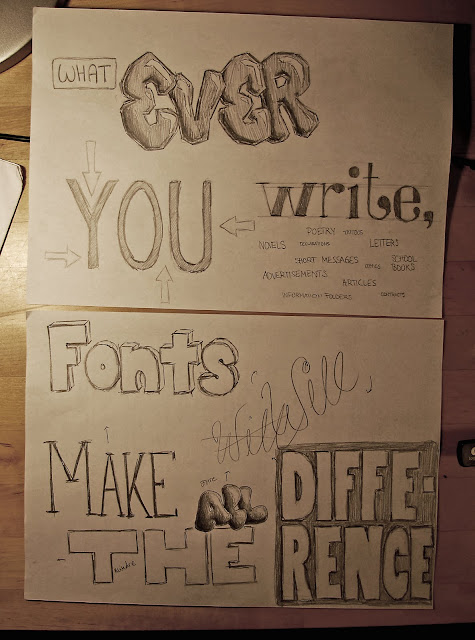 WHAT EVER
YOU write,
POETRY
NOVELS LETTERS
SHORT MESSAGES SCHOOL BOOKS
ADVERTISEMENTS
ARTICLES
INFORMATION FOLDERS CONTRACTS
Fonts
Will,
MAKE ALL
THE
DIFFE-
RENCE